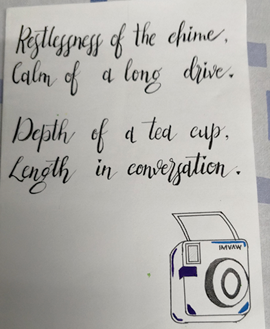 Restlessness of the chime,
Calm of a long drive.
Depth of a tea cup,
Length in conversation.
IMVAW